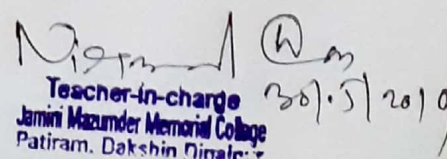 30/.5/2019
Teacher-in-charge
Jamini Mazumder Memorial College
Patiram, Dakshin Dinajpur